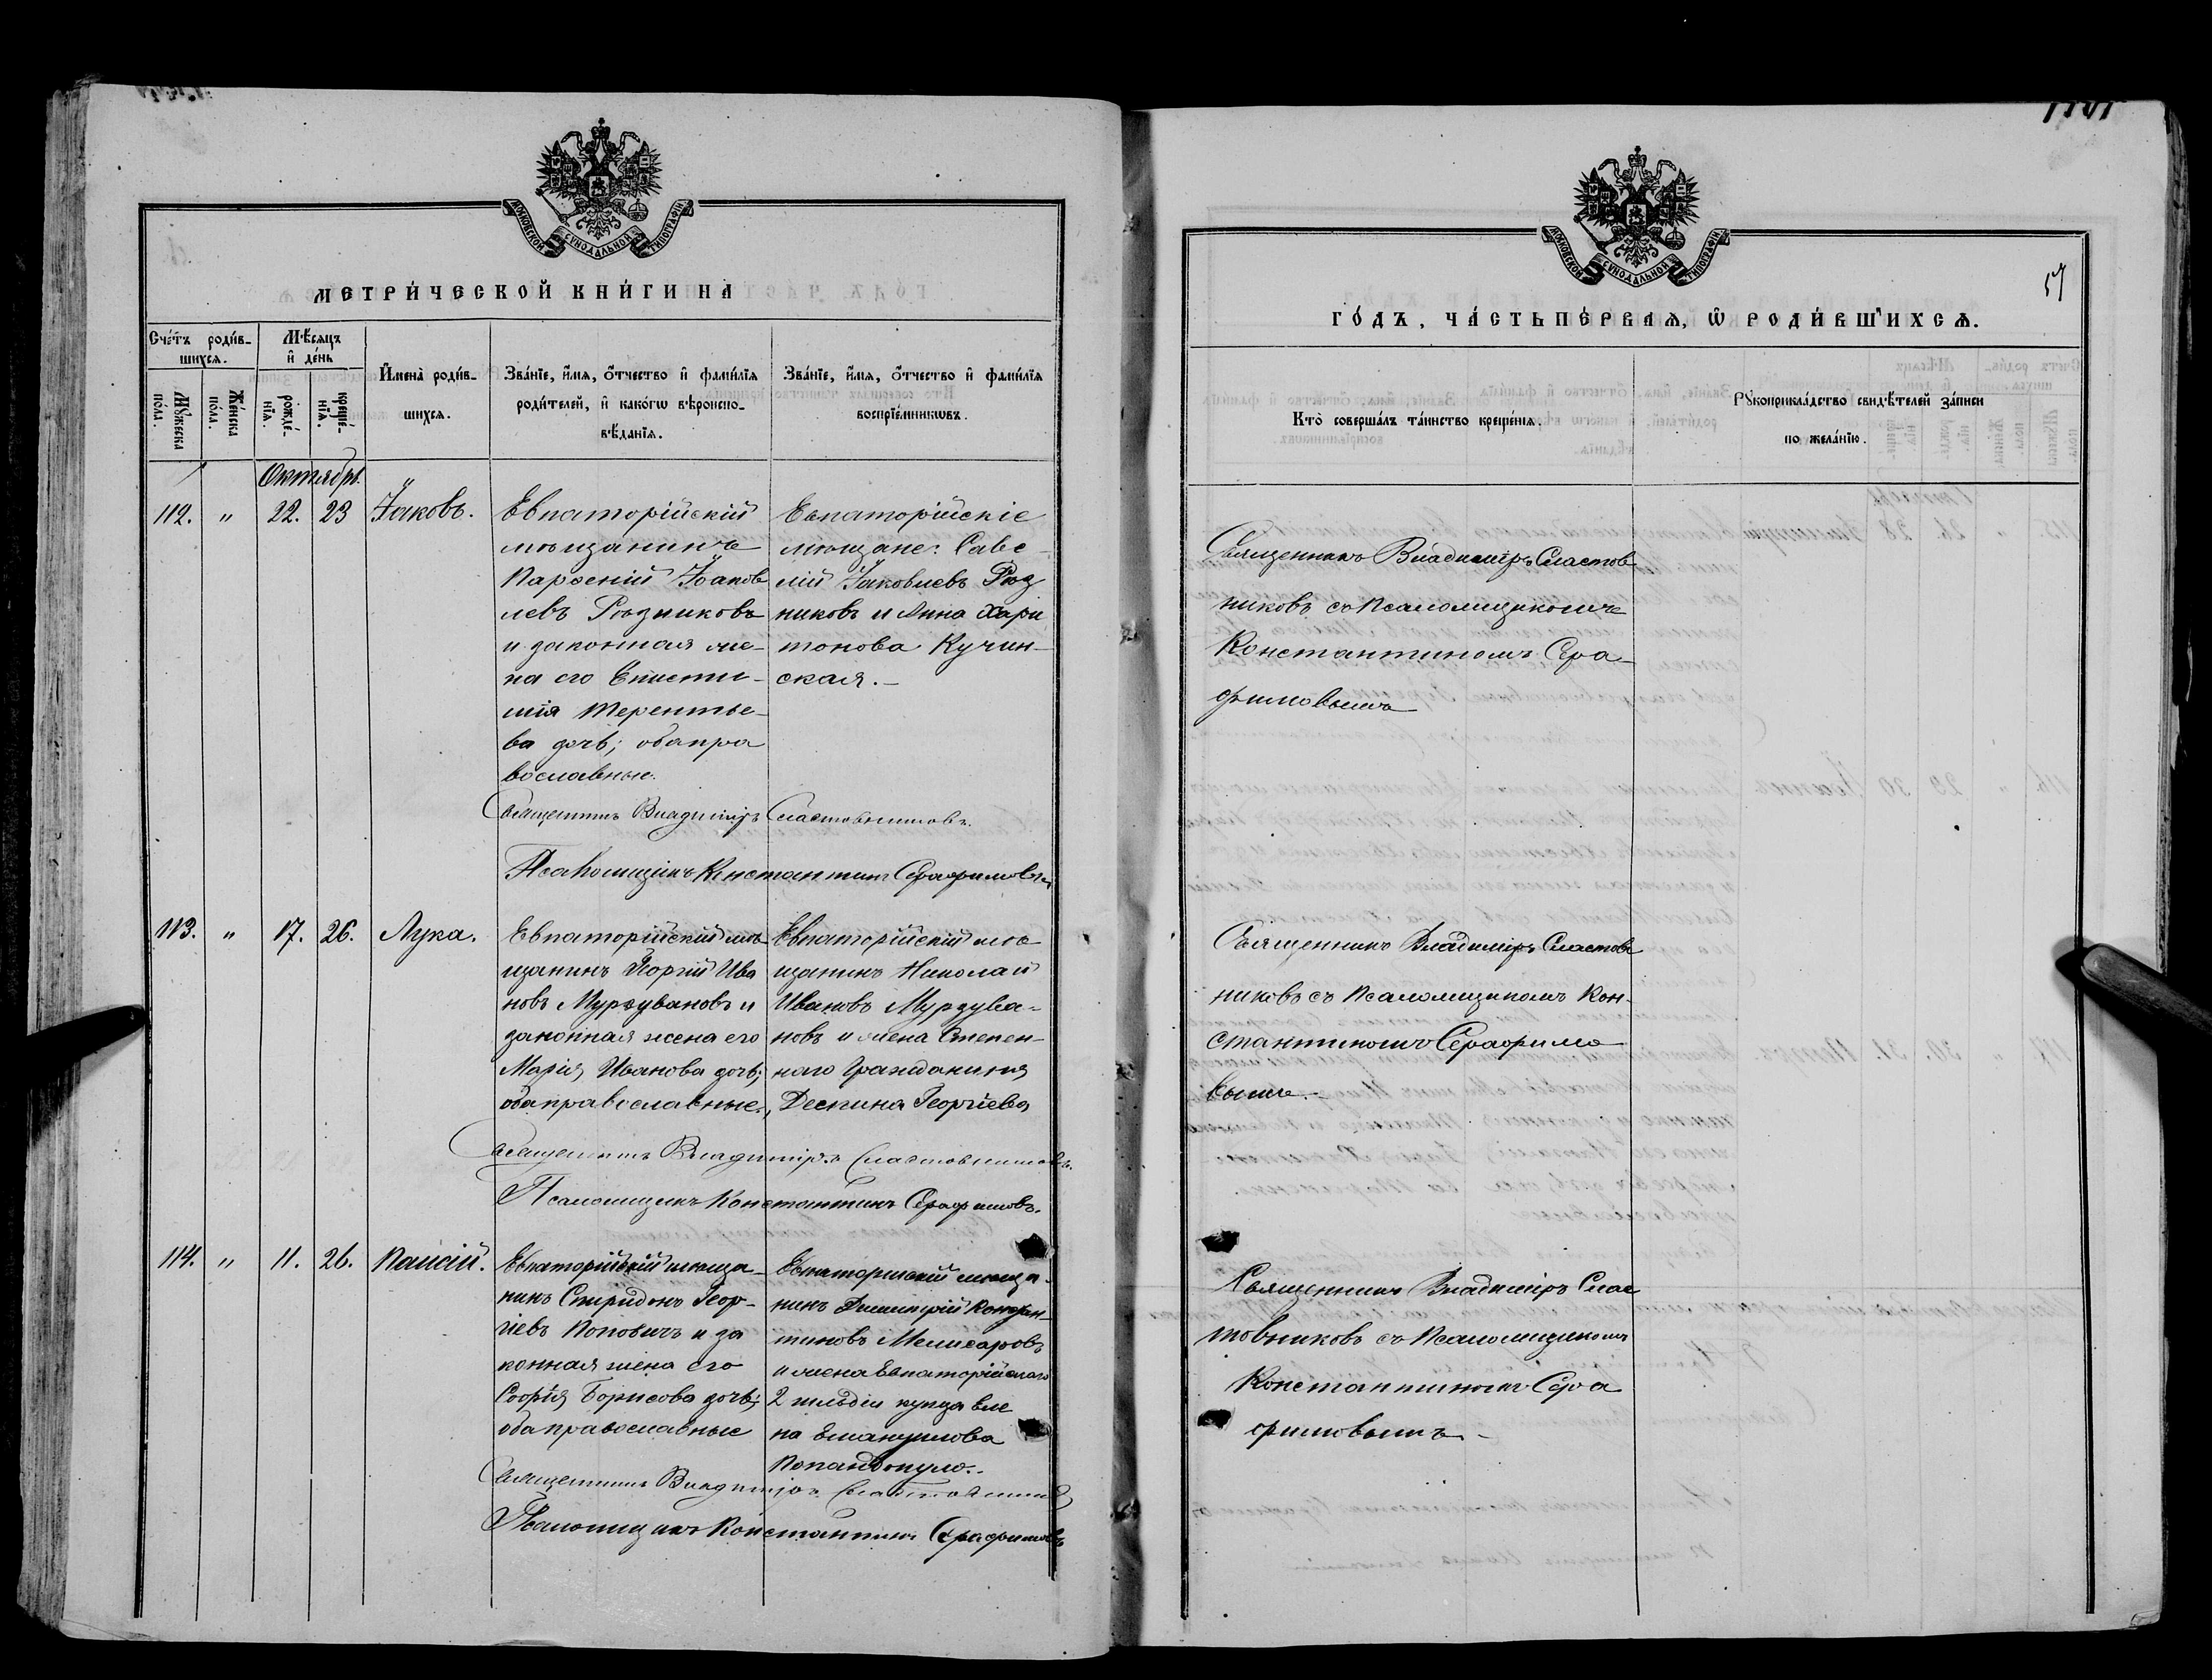 МОСКОВСКОЙ СУНОДАЛЬНОЙ ТИПОГРАФІИ
МЕТРИ́ЧЕСКОЙ КНИ́ГИ НА
Сче́тъ роди́в-
шихся.
Мꙋ́жеска
по́ла.
Же́нска
по́ла.
Мѣ́сяцъ
и҆ де́нь
рожде́-
нїѧ.
креще́-
нїѧ.
И҆мена̀ роди́в-
шихся.
Зва́нїе, и҆́мѧ, ѻ҆́тчество и҆ фамѝлїѧ
роди́телей, и҆ како́гѡ вѣроиспо-
вѣ́данїѧ.
Зва́нїе, и҆́мѧ, ѻ҆́тчество и҆ фамѝлїѧ
воспрїе́мникѡвъ.
Октябрь
112. " 22. 23 Іаковъ.
Евпаторійскій
мѣщанинъ
Парѳеній Іаков
левъ Рѣзниковъ
и законная же-
на его Еписти-
мія Терентье-
ва дочь; оба пра
вославные.
Евпаторійскіе
мѣщане: Саве
лій Іаковлевъ Рѣз
никовъ и Анна Хари
тонова Кучин-
ская.-
Священникъ Владиміръ Сластовниковъ.
Псаломщикъ Константинъ Серафимовъ
113. " 17. 26. Лука.
Евпаторійскій мѣ
щанинъ Георгій Ива
новъ Мурзувановъ и
законная жена его
Марія Иванова дочь;
оба православные.
Евпаторійскій мѣ
щанинъ Николай
Ивановъ Мурзува-
новъ и жена Степен
наго гражданина
Деспина Георгіева
Священникъ Владиміръ Сластовниковъ.
Псаломщикъ Константинъ Серафимовъ.
114. " 11. 26. Паисій.
Евпаторійскій мѣща-
нинъ Спиридонъ Геор-
гіевъ Поповичъ и за
конная жена его
Софія Борисова дочь;
оба православные
Евпаторійскій мѣща-
нинъ Димитрій Констан-
тиновъ Мелисаровъ
и жена Евпаторійскаго
2 гильдіи купца Еле
на Емануилова
Попандопуло.
Священникъ Владиміръ Сластовниковъ
Псаломщикъ Константинъ Серафимовъ
МОСКОВСКОЙ СУНОДАЛЬНОЙ ТИПОГРАФІИ
57
ГО́ДЪ, ЧА́СТЬ ПЕ́РВАѦ, Ѽ РОДИ́ВШИХСѦ.
Кто̀ соверша́лъ та́инство креще́нїѧ.
Рꙋкоприкла́дство свидѣ́телей за́писи
по жела́нїю.
Священникъ Владиміръ Сластов
никовъ съ Псаломщикомъ
Константиномъ Сера-
фимовымъ
Священникъ Владиміръ Сластов
никовъ съ Псаломщикомъ Кон-
стантиномъ Серафимо
вымъ.-
Священникъ Владиміръ Слас
товниковъ съ Псаломщикомъ
Константиномъ Сера
фимовымъ.-